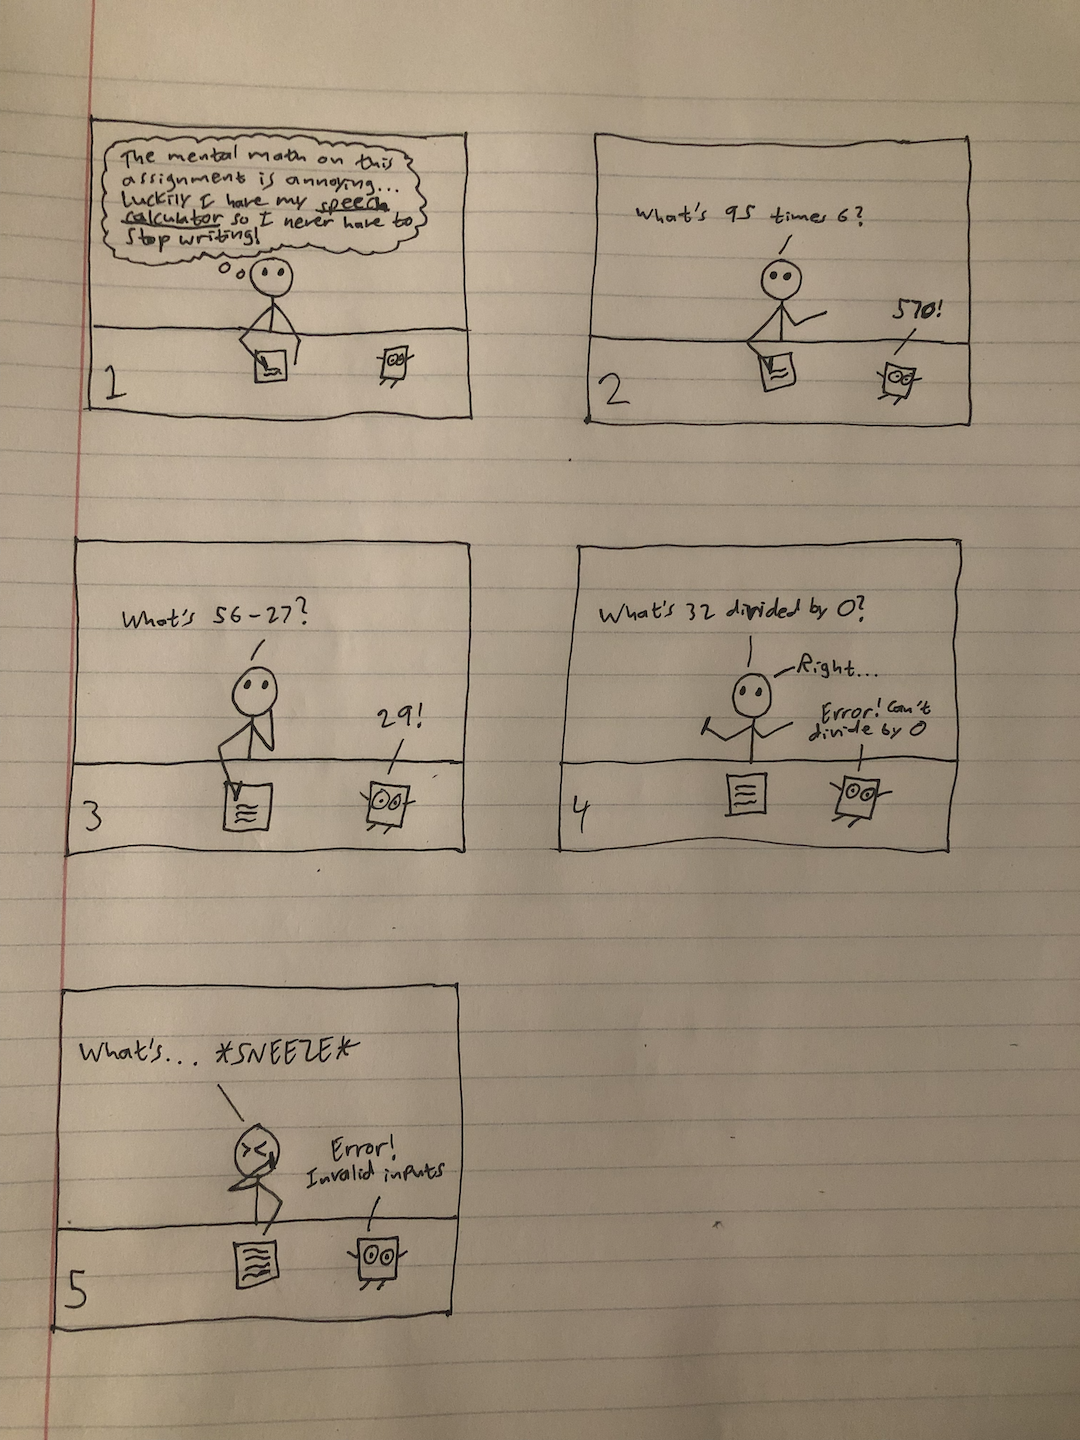 The mental math on this
assignment is annoying...
Luckily I have my speech
calculator so I never have to
stop writing!
1
What's 95 times 6?
570!
2
What's 56-27?
29!
3
What's 32 divided by 0?
Right...
Error! Can't
divide by 0
4
What's... *SNEEZE*
Error!
Invalid inputs
5